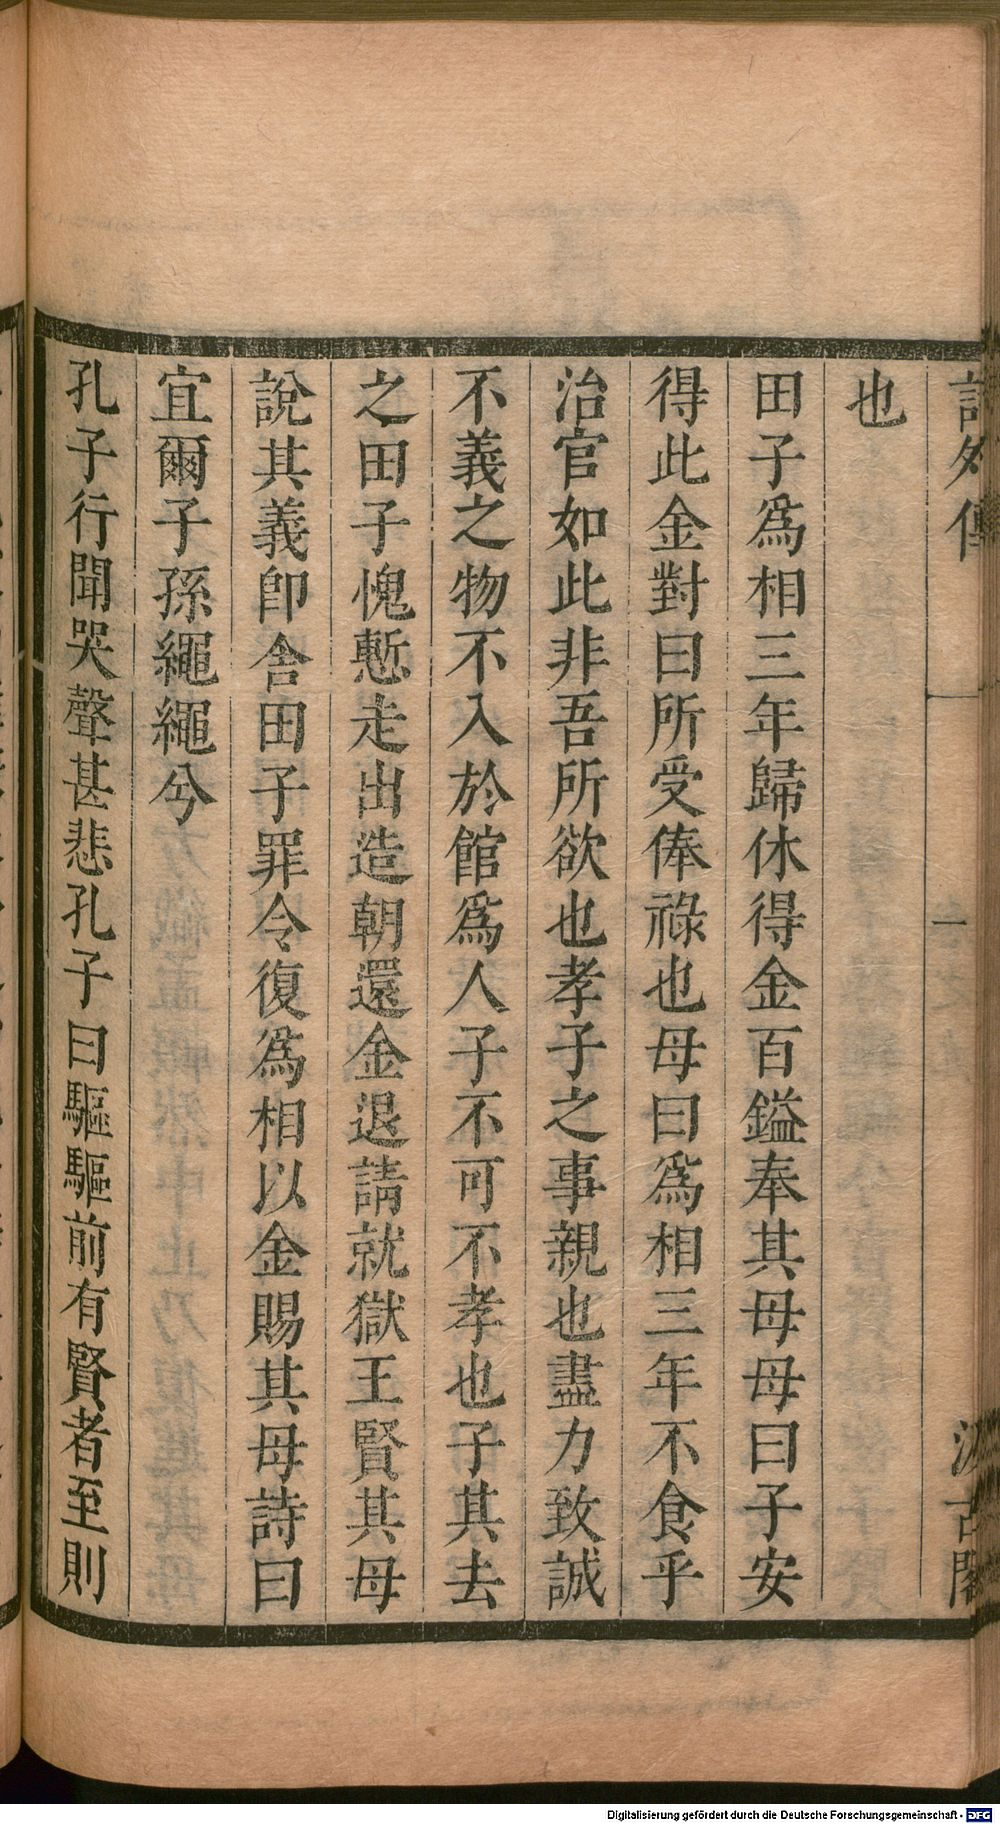 詩外傳 一 汲古閣
也
田子爲相三年歸休得金百鎰奉其母母曰子安
得此金對曰所受俸祿也母曰爲相三年不食乎
治官如此非吾所欲也孝子之事親也盡力致誠
不義之物不入於館爲人子不可不孝也子其去
之田子愧慙走出造朝還金退請就獄王賢其母
說其義卽舍田子罪令復爲相以金賜其母詩曰
宜爾子孫繩繩兮
孔子行聞哭聲甚悲孔子曰驅驅前有賢者至則
Digitalisierung gefördert durch die Deutsche Forschungsgemeinschaft - DFG